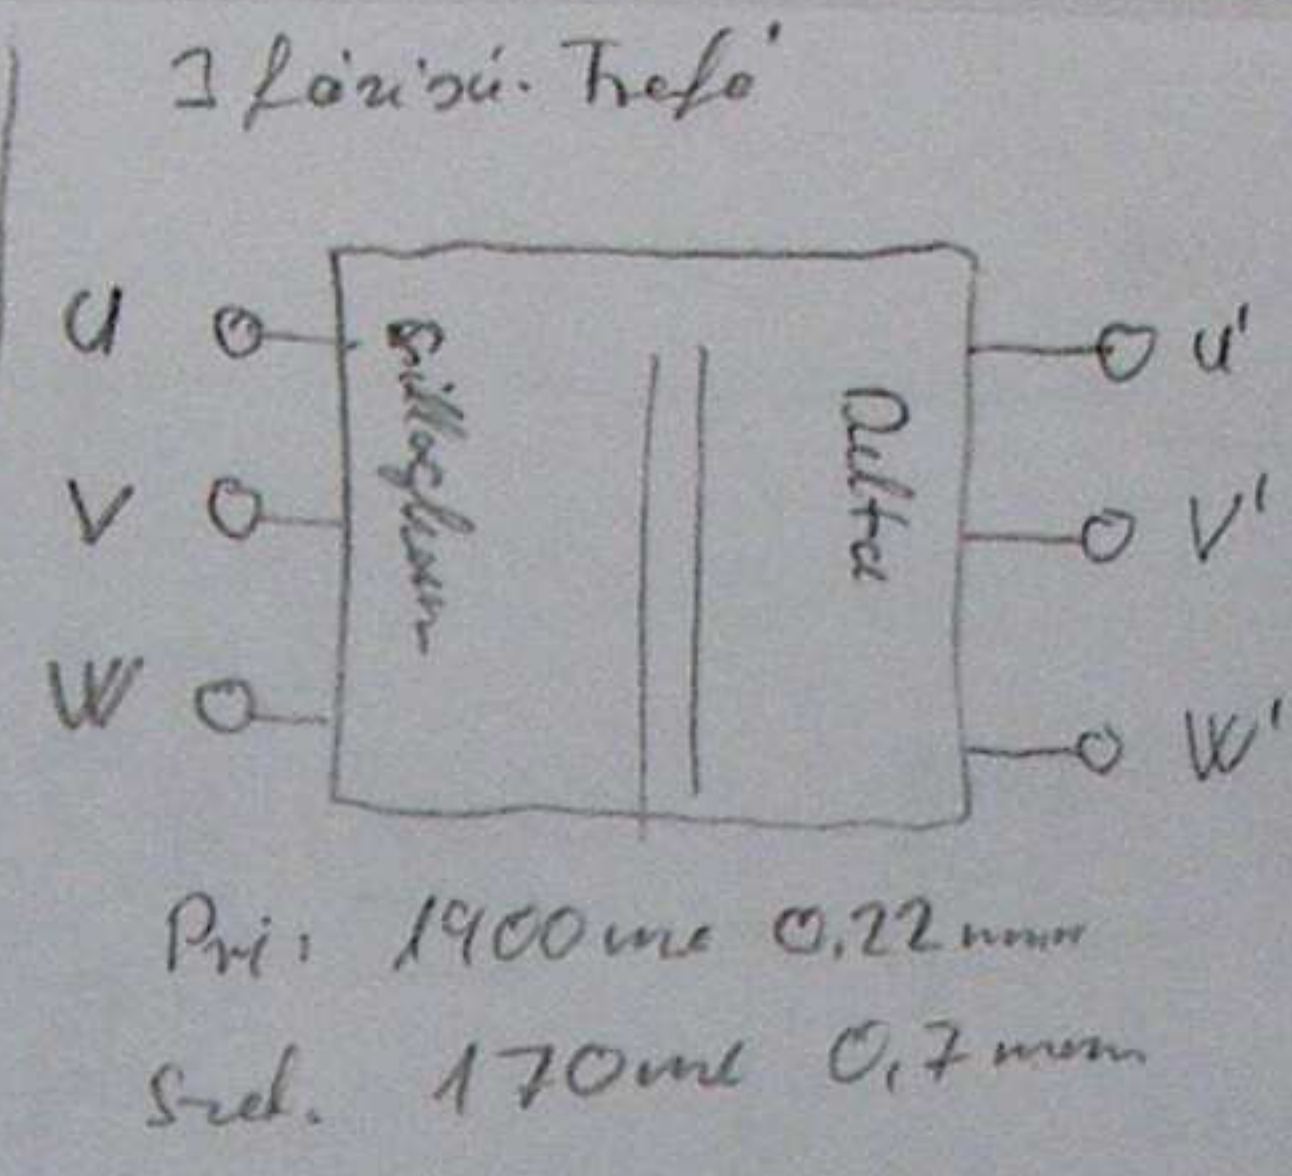 3 fázisú. Trafó
U
Csillag
Delta
U'
V
V'
W
W'
Pri: 1900 me 0,22 mm
Szek. 170 me 0,7 mm